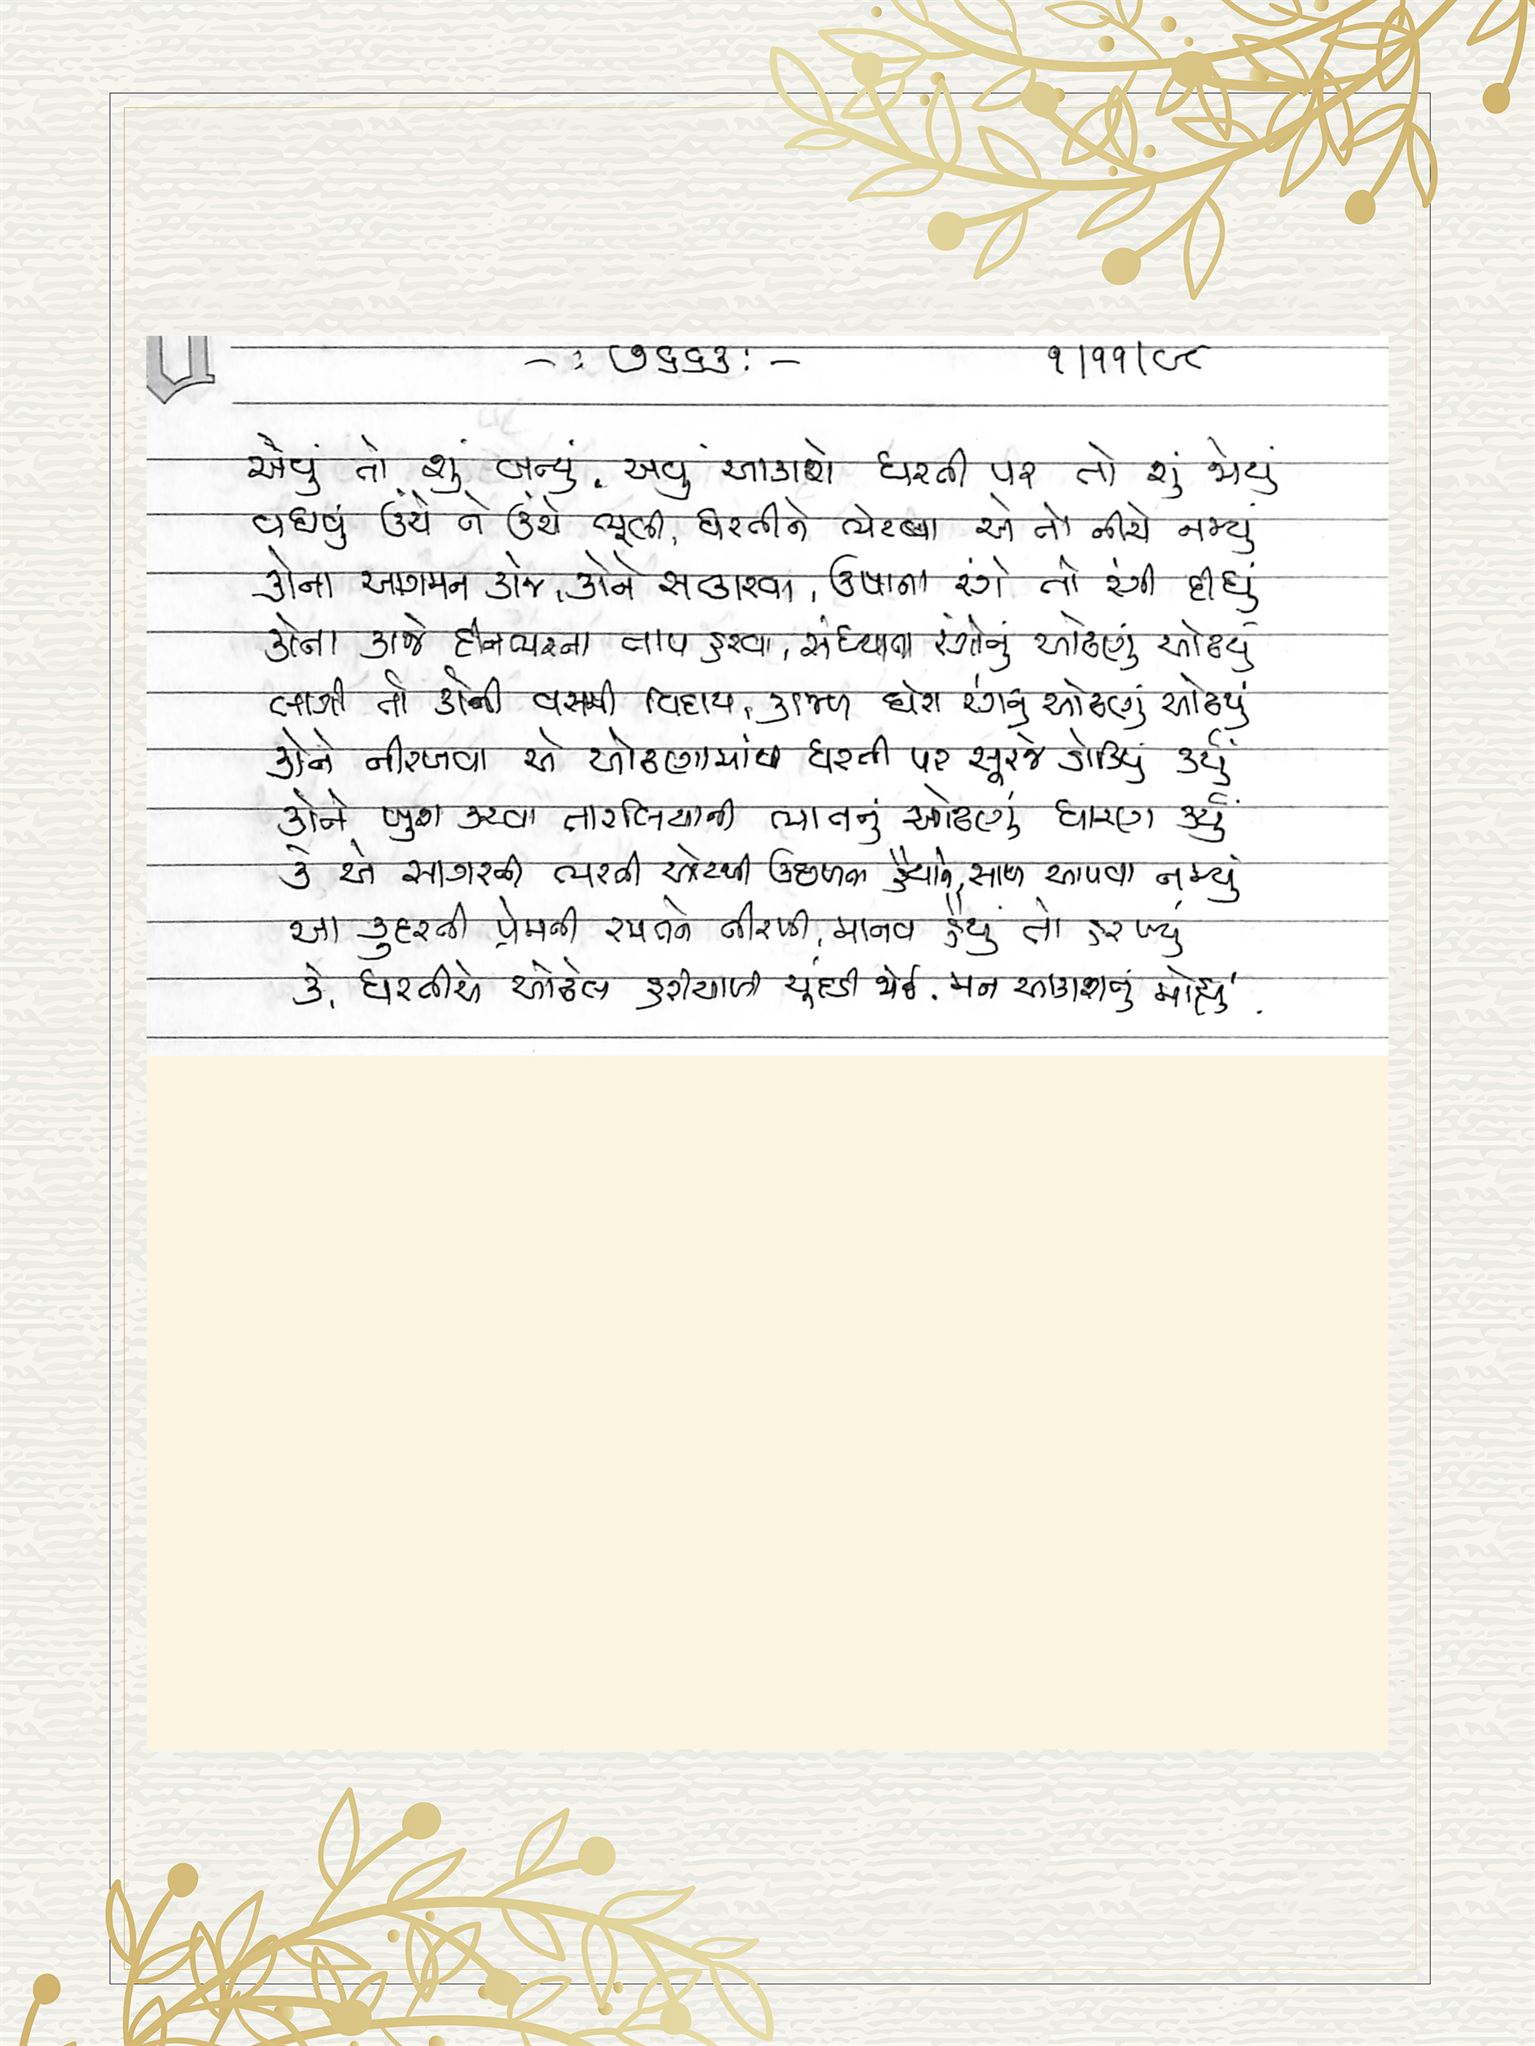 -: ૭૬૬૩ :- ૧/૧૧/૯૮
એવું તો શું બન્યું, એવું આકાશે ધરતી પર તો શું જોયું
વધવું ઉંચે ને ઉંચે ભૂલી, ધરતીને ભેટવા એ તો નીચે નમ્યું
કોના આગમન કાજે, કોને સત્કારવા, ઉષાના રંગે તો રંગી દીધું
કોના કાજે દીનભરના તાપ હરવા, સંધ્યાના રંગોનું ઓઢણું ઓઢયું
લાગી તો કોની વસમી વિદાય, કાજળ ઘેરા રંગનું ઓઢણું ઓઢયું
કોને નીરખવા એ ઓઢણામાંથી ધરતી પર સૂરજે ડોકિયું કર્યું
કોને ખુશ કરવા તારલિયાની ભાતનું ઓઢણું ધારણ કર્યું
કે એ સાગરની ભરતી ઓટથી ઉછળતા હૈયાને, સાથ આપવા નમ્યું
આ કુદરતની પ્રેમની રમતને નીરખી, માનવ હૈયું તો હરખ્યું
કે, ધરતીએ ઓઢેલ હરીયાળી ચૂંદડી જોઈ, મન આકાશનું મોહ્યું.